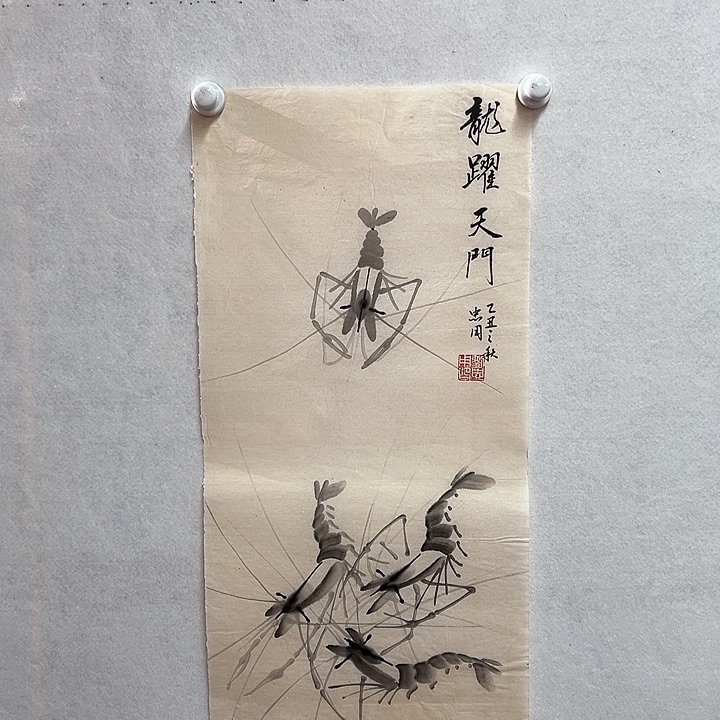 龍躍天門
乙丑之秋
忠周